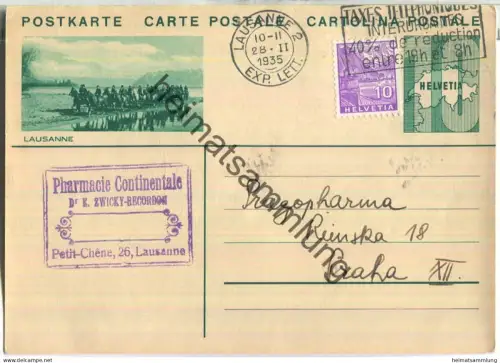 POSTKARTE CARTE POSTALE CARTOLINA POSTALE
LAUSANNE 2
10-11
28. II
1935
EXP. LETT.
TAXES TÉLÉPHONIQUES
INTERURBAINES
40% de réduction
entre 19h et 8h
10
HELVETIA
HELVETIA
LAUSANNE
Pharmacie Continentale
Dr E. ZWICKY-RECORDON
Petit-Chêne, 26, Lausanne
Pragopharma
Římska 18
Praha XII.
heimatsammlung
www.heimatsammlung.de
heimatsammlung